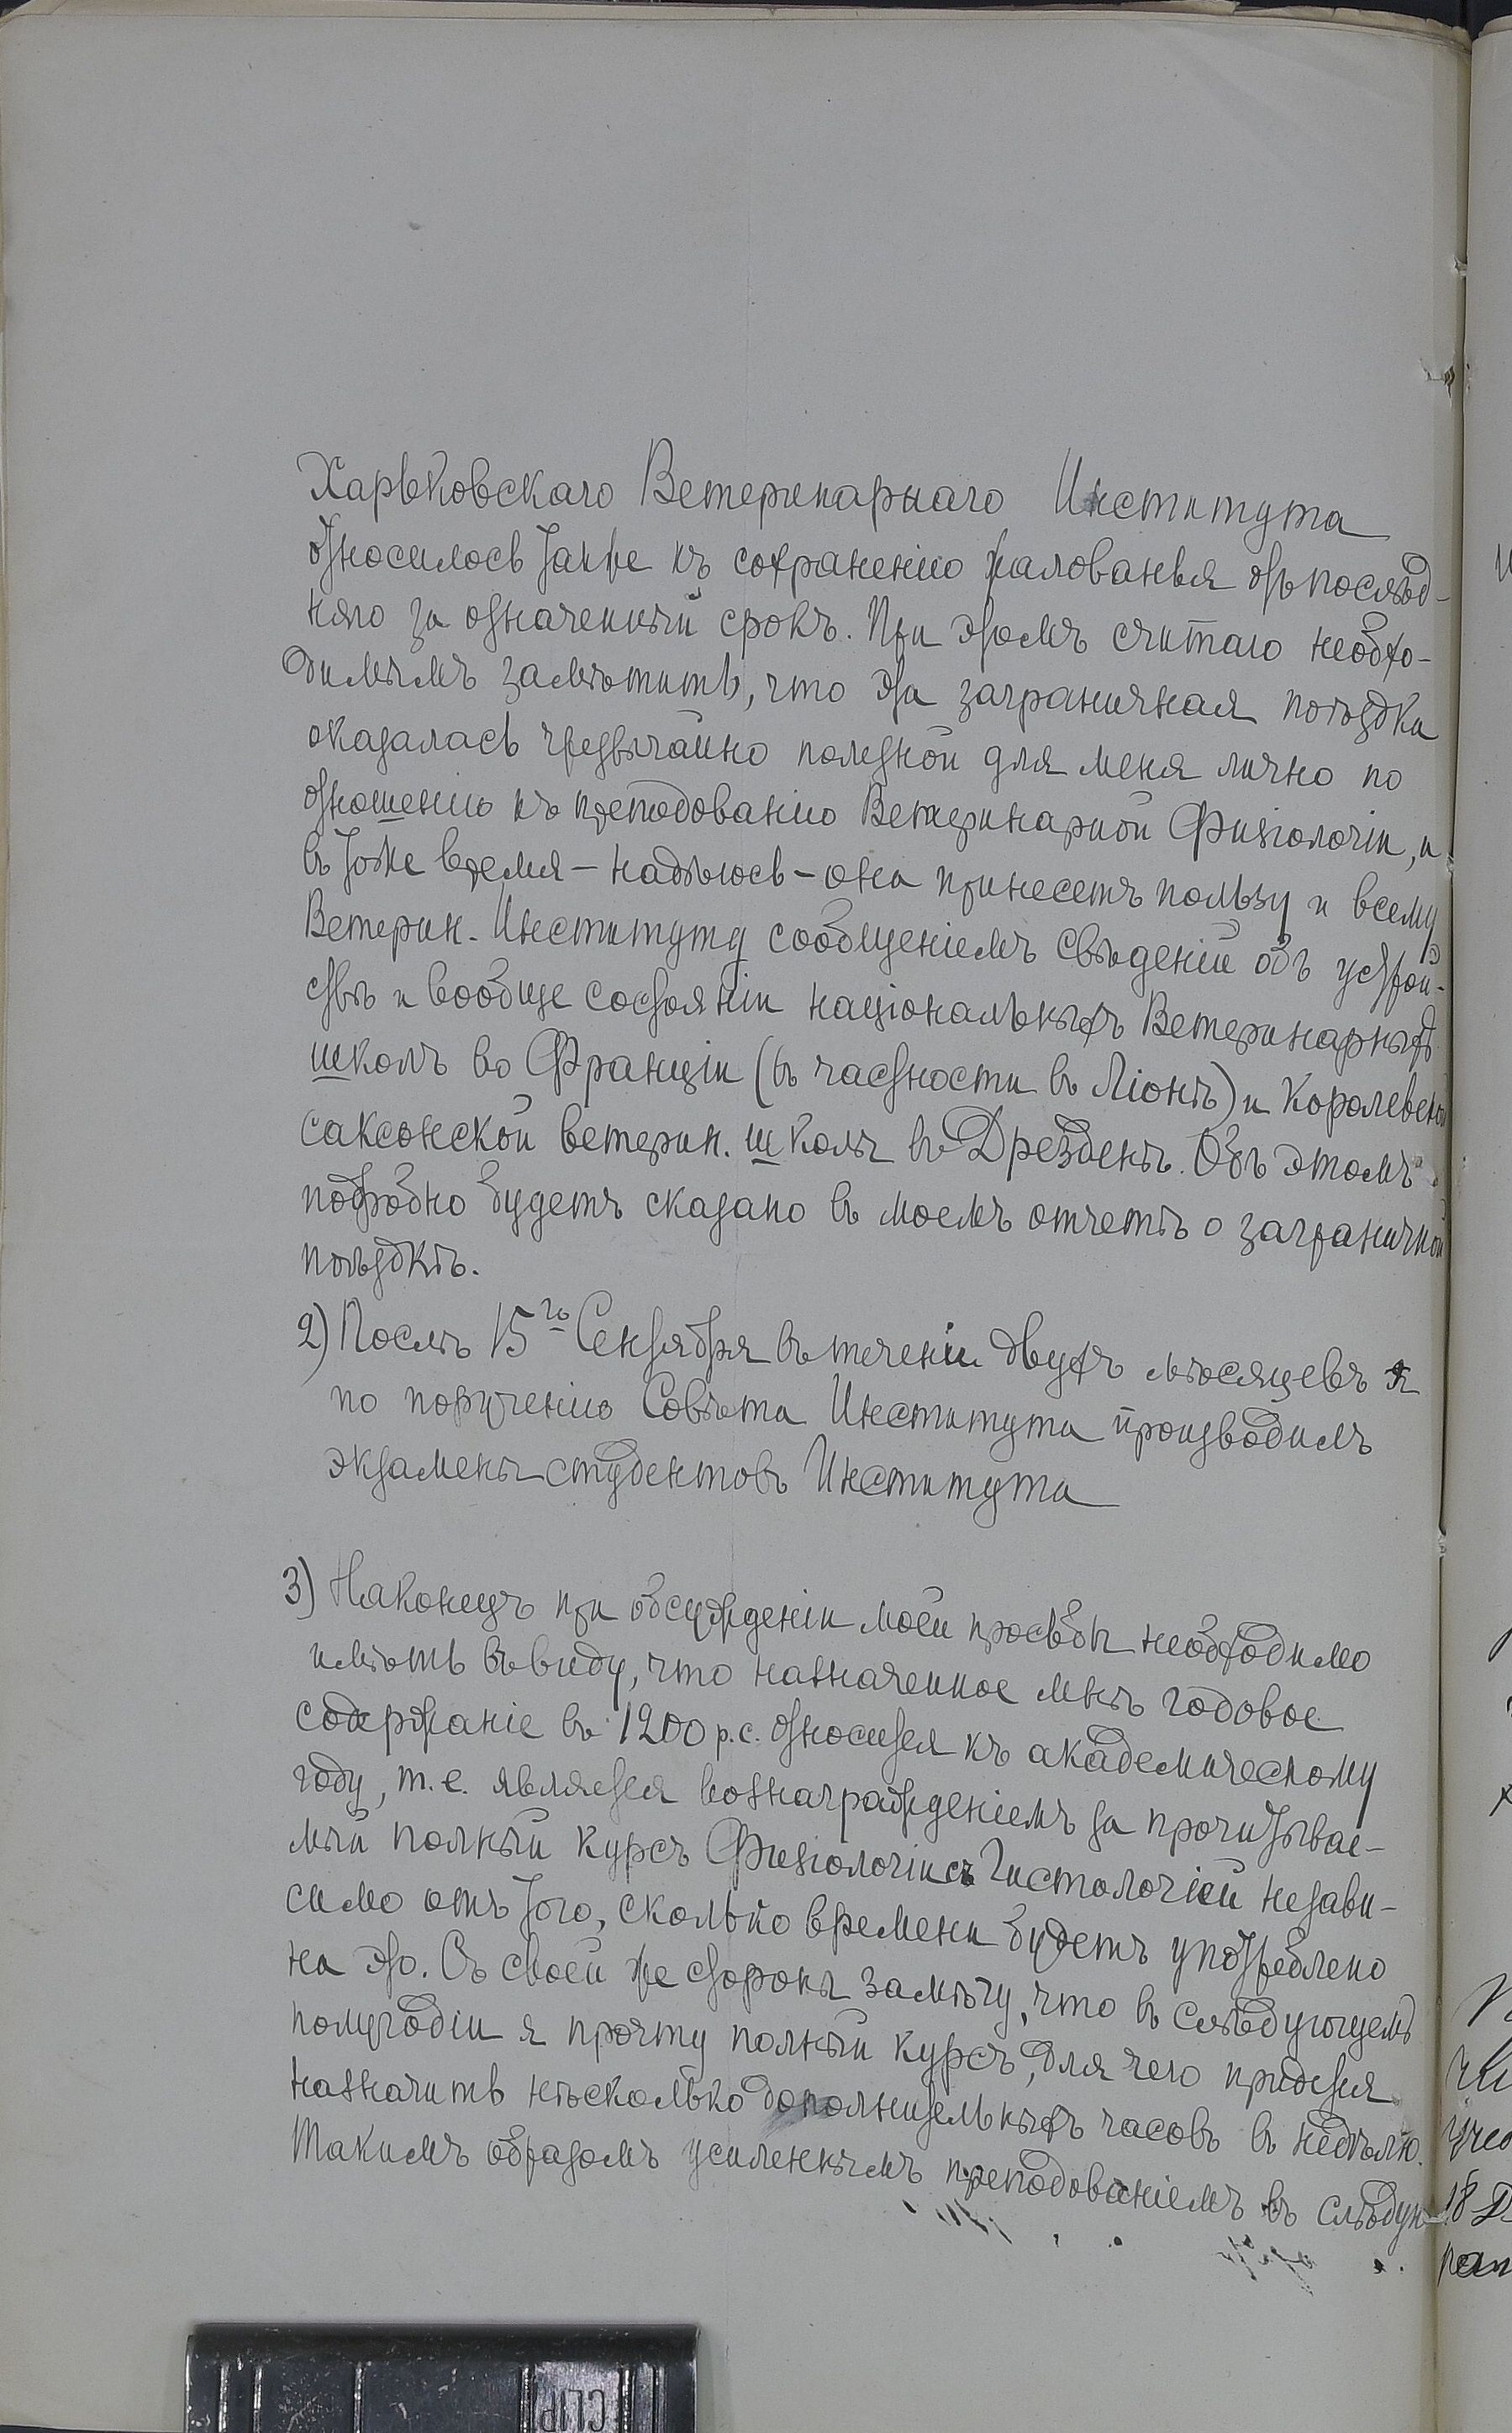 Харьковскаго Ветеринарнаго Института
относилось также къ сохраненію жалованья отъ послѣд-
няго за означенный срокъ. При этомъ считаю необхо-
димымъ замѣтить, что эта заграничная поѣздка
оказалась чрезвычайно полезной для меня лично по
отношенію къ преподованію Ветеринарной Физіологіи, и
въ тоже время – надѣюсь – она принесетъ пользу и всему
Ветерин. Институту сообщеніемъ свѣденій объ устрой-
ствѣ и вообще состояніи національныхъ Ветеринарныхъ
школъ во Франціи (въ частности въ Ліонѣ) и Королевской
саксонской ветерин. школы въ Дрезденѣ. Объ этомъ
подробно будетъ сказано въ моемъ отчетѣ о заграничной
поѣздкѣ.
2) Послѣ 15го Сентября въ теченіи двухъ мѣсяцевъ я
по порученію Совѣта Института производилъ
экзамены студентовъ Института
3) Наконецъ при обсужденіи моей просьбы необходимо
имѣть въ виду, что назначенное мнѣ годовое
содержаніе въ 1200 р.с. относится къ академическому
году, т.е. является вознагражденіемъ за прочитывае-
мый полный курсъ Физіологіи съ Гистологіей незави-
симо отъ того, сколько времени будетъ употреблено
на это. Съ своей же стороны замѣчу, что въ слѣдующемъ
полугодіи я прочту полный курсъ, для чего придется
назначить нѣсколько дополнительныхъ часовъ въ недѣлю.
Такимъ образомъ усиленнымъ преподованіемъ въ слѣдую-